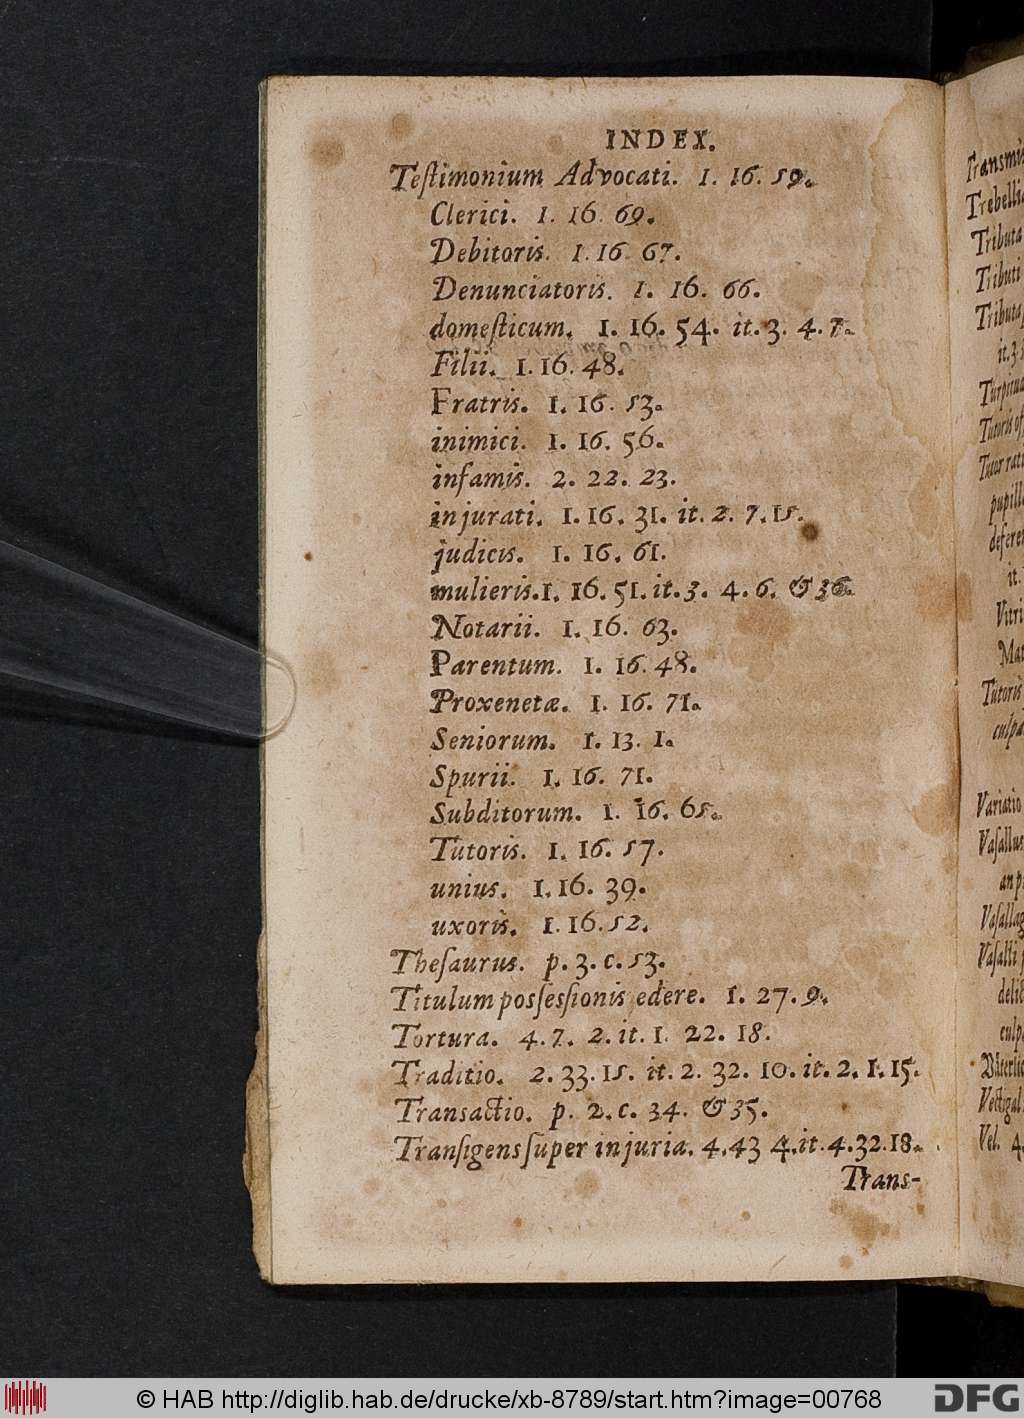 INDEX.
Teſtimonium Advocati. 1. 16. 59.
Clerici. 1. 16. 69.
Debitoris. 1. 16. 67.
Denunciatoris. 1. 16. 66.
domeſticum. 1. 16. 54. it. 3. 4. 7.
Filii. 1. 16. 48.
Fratris. 1. 16. 53.
inimici. 1. 16. 56.
infamis. 2. 22. 23.
injurati. 1. 16. 31. it. 2. 7. 15.
judicis. 1. 16. 61.
mulieris. 1. 16. 51. it. 3. 4. 6. & 36.
Notarii. 1. 16. 63.
Parentum. 1. 16. 48.
Proxenetæ. 1. 16. 71.
Seniorum. 1. 13. 1.
Spurii. 1. 16. 71.
Subditorum. 1. 16. 65.
Tutoris. 1. 16. 57.
unius. 1. 16. 39.
uxoris. 1. 16. 52.
Theſaurus. p. 3. c. 53.
Titulum poſſeſſionis edere. 1. 27. 9.
Tortura. 4. 7. 2. it. 1. 22. 18.
Traditio. 2. 33. 15. it. 2. 32. 10. it. 2. 1. 15.
Transactio. p. 2. c. 34. & 35.
Tranſigens ſuper injuria. 4. 43 4. it. 4. 32. 18.
Trans-
Trebelli
Tributa
Tributi
Tributa
it. 3.
pupill
it.
Vitri
Mat
Tutoris
culpa
Variatio
Vaſallus
an p
Vaſallag
Vaſalli
delic
culp
Vectigal
Vel. 4.
© HAB http://diglib.hab.de/drucke/xb-8789/start.htm?image=00768
DFG